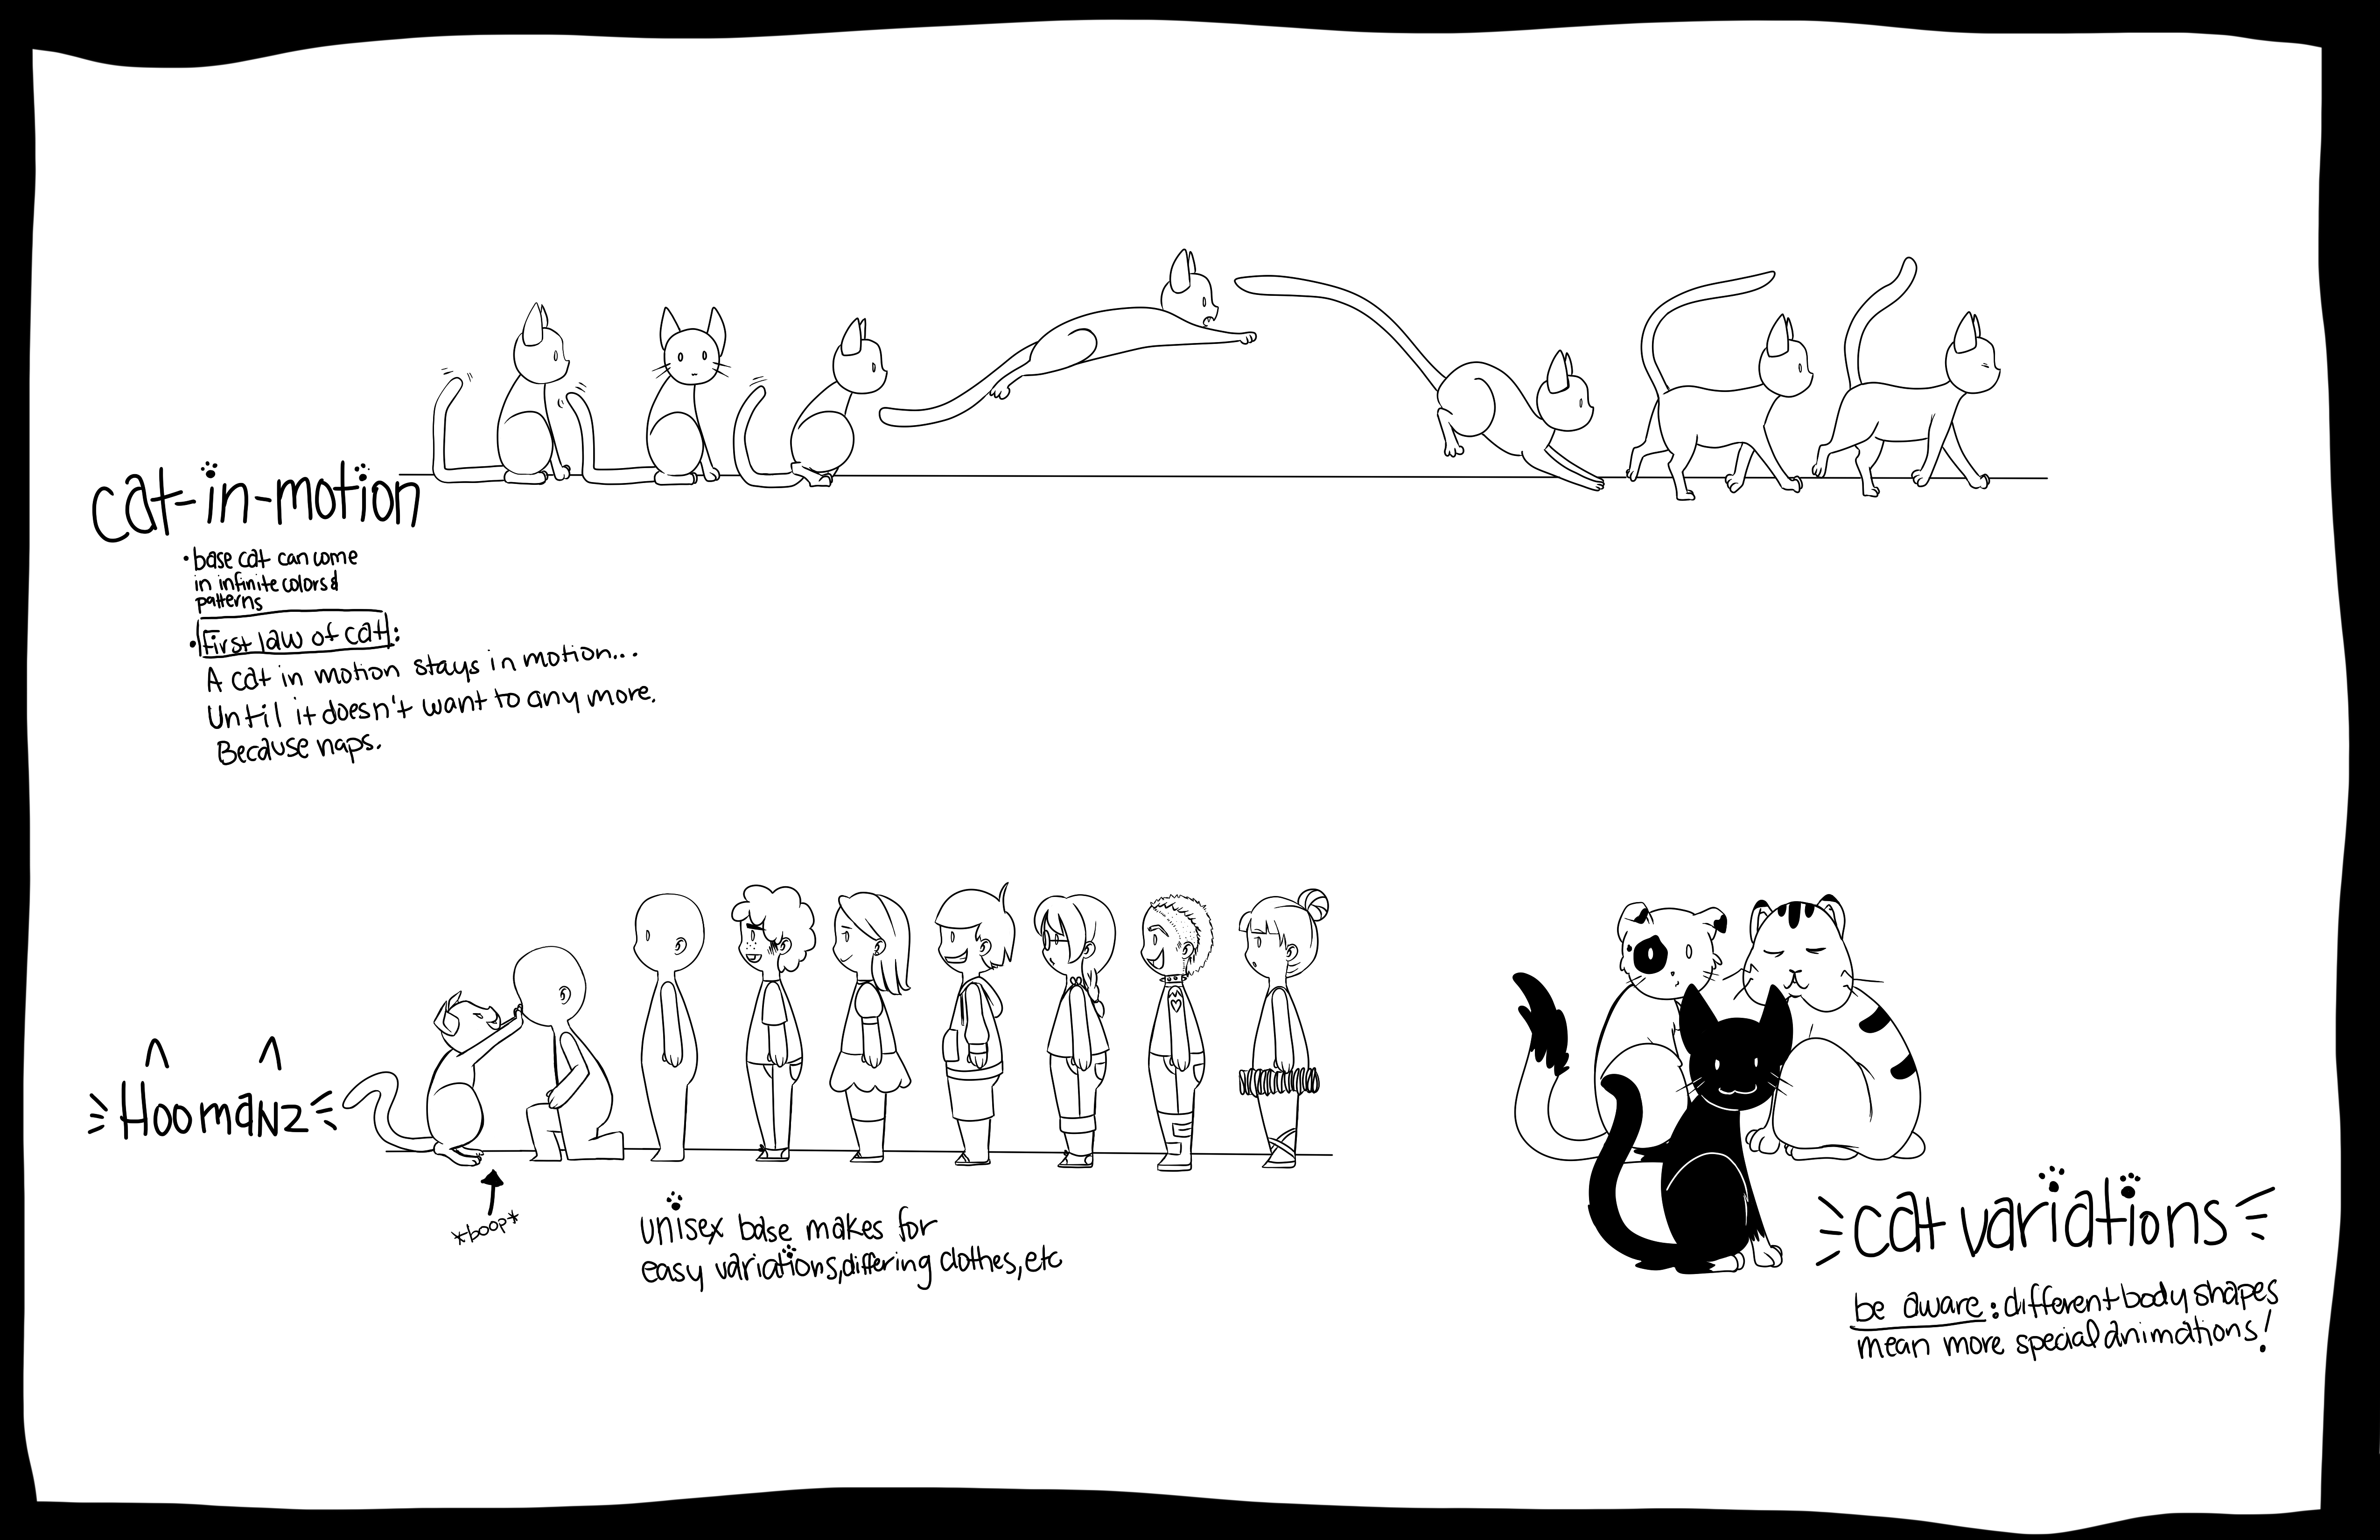 cat-in-motion
• base cat can come
in infinite colors &
patterns
• First law of cat:
A cat in motion stays in motion...
Until it doesn't want to any more.
Because naps.
HoomaNz
*boop*
unisex base makes for
easy variations, differing clothes, etc
cat variations
be aware: different body shapes
mean more special animations!